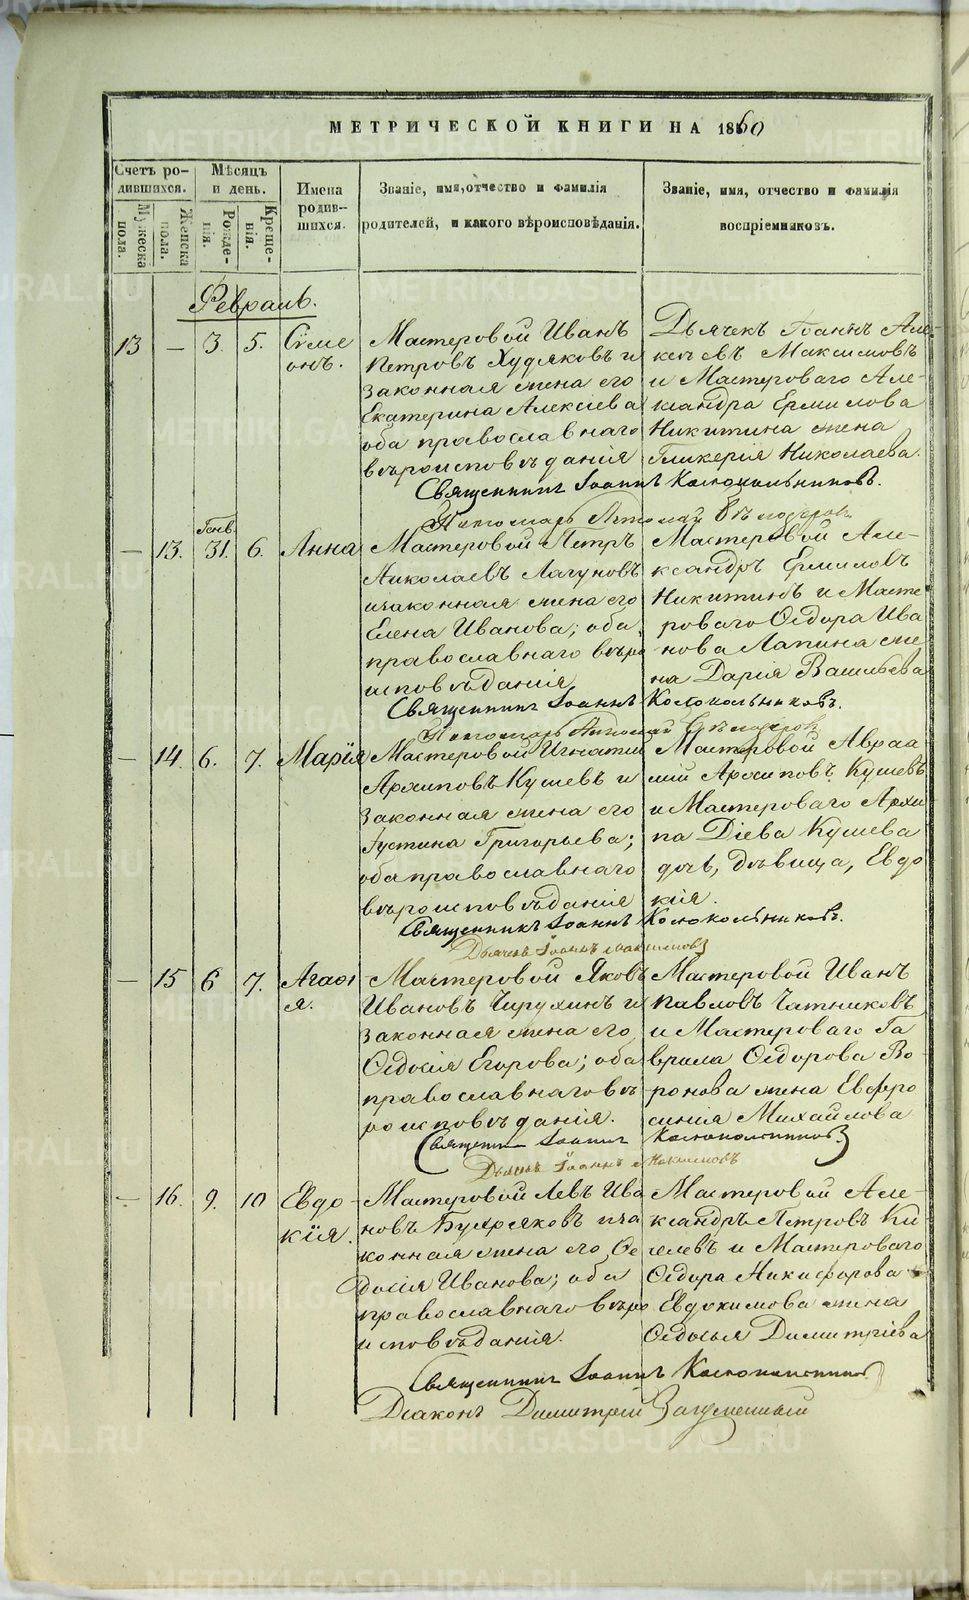 МЕТРИЧЕСКОЙ КНИГИ НА 1860
Счетъ ро-
дившихся.
Мужеска
пола.
Женска
пола.
Мѣсяцъ
и день.
Рожде-
нія.
Креще-
нія.
Имена
родив-
шихся.
Званіе, имя, отчество и фамилія
родителей, и какого вѣроисповѣданія.
Званіе, имя, отчество и фамилія
воспріемниковъ.
Февраль.
13 — 3. 5. Сіме
онъ.
Мастеровой Иванъ
Петровъ Худяковъ и
законная жена его
Екатерина Алексіева
оба православнаго
вѣроисповѣданія
Дьячекъ Іоаннъ Але-
ксѣевъ Максимовъ
и Мастероваго Але-
ксандра Ермилова
Никитина жена
Гликерія Николаева.
Священникъ Іоаннъ Колокольниковъ.
Пономарь
— 13. Генв. 31. 6. Анна
Мастеровой Петръ
Николаевъ Лагуновъ
и законная жена его
Елена Иванова; оба
православнаго вѣро
исповѣданія
Мастеровой Але-
ксандръ Ермиловъ
Никитинъ и Масте
роваго Ѳедора Ива
нова Лапина же
на Дарія Васильева
Священникъ Іоаннъ Колокольниковъ.
Пономарь
— 14. 6. 7. Марія
Мастеровой Игнатій
Архиповъ Кушевъ и
законная жена его
Іустина Григорьева;
оба православнаго
вѣроисповѣданія
Мастеровой Авраа
мій Архиповъ Кушевъ
и Мастероваго Архи
па Діева Кушева
дочь, дѣвица, Евдо
кія.
Священникъ Іоаннъ Колокольниковъ.
Дьячекъ Іоаннъ Максимовъ
— 15 6 7. Агаѳі
я.
Мастеровой Яковъ
Ивановъ Чирухинъ и
законная жена его
Ѳедосія Егорова; оба
православнаго вѣ
роисповѣданія.
Мастеровой Иванъ
Павловъ Чатниковъ
и Мастероваго Га
врила Ѳедорова Во-
ронова жена Евфро
синія Михайлова
Священникъ Іоаннъ Колокольниковъ
Дьячекъ Іоаннъ Максимовъ
— 16. 9. 10 Евдо-
кія.
Мастеровой Левъ Ива
новъ и за
конная жена его Ѳе
досія Иванова; оба
православнаго вѣро
исповѣданія.
Мастеровой Але-
ксандръ Петровъ Ки
селевъ и Мастероваго
Ѳедора Никифорова
Евдокимова жена
Ѳедосья Димитріева
Священникъ Іоаннъ Колокольниковъ
Діаконъ Димитрій
METRIKI.GASO-URAL.RU